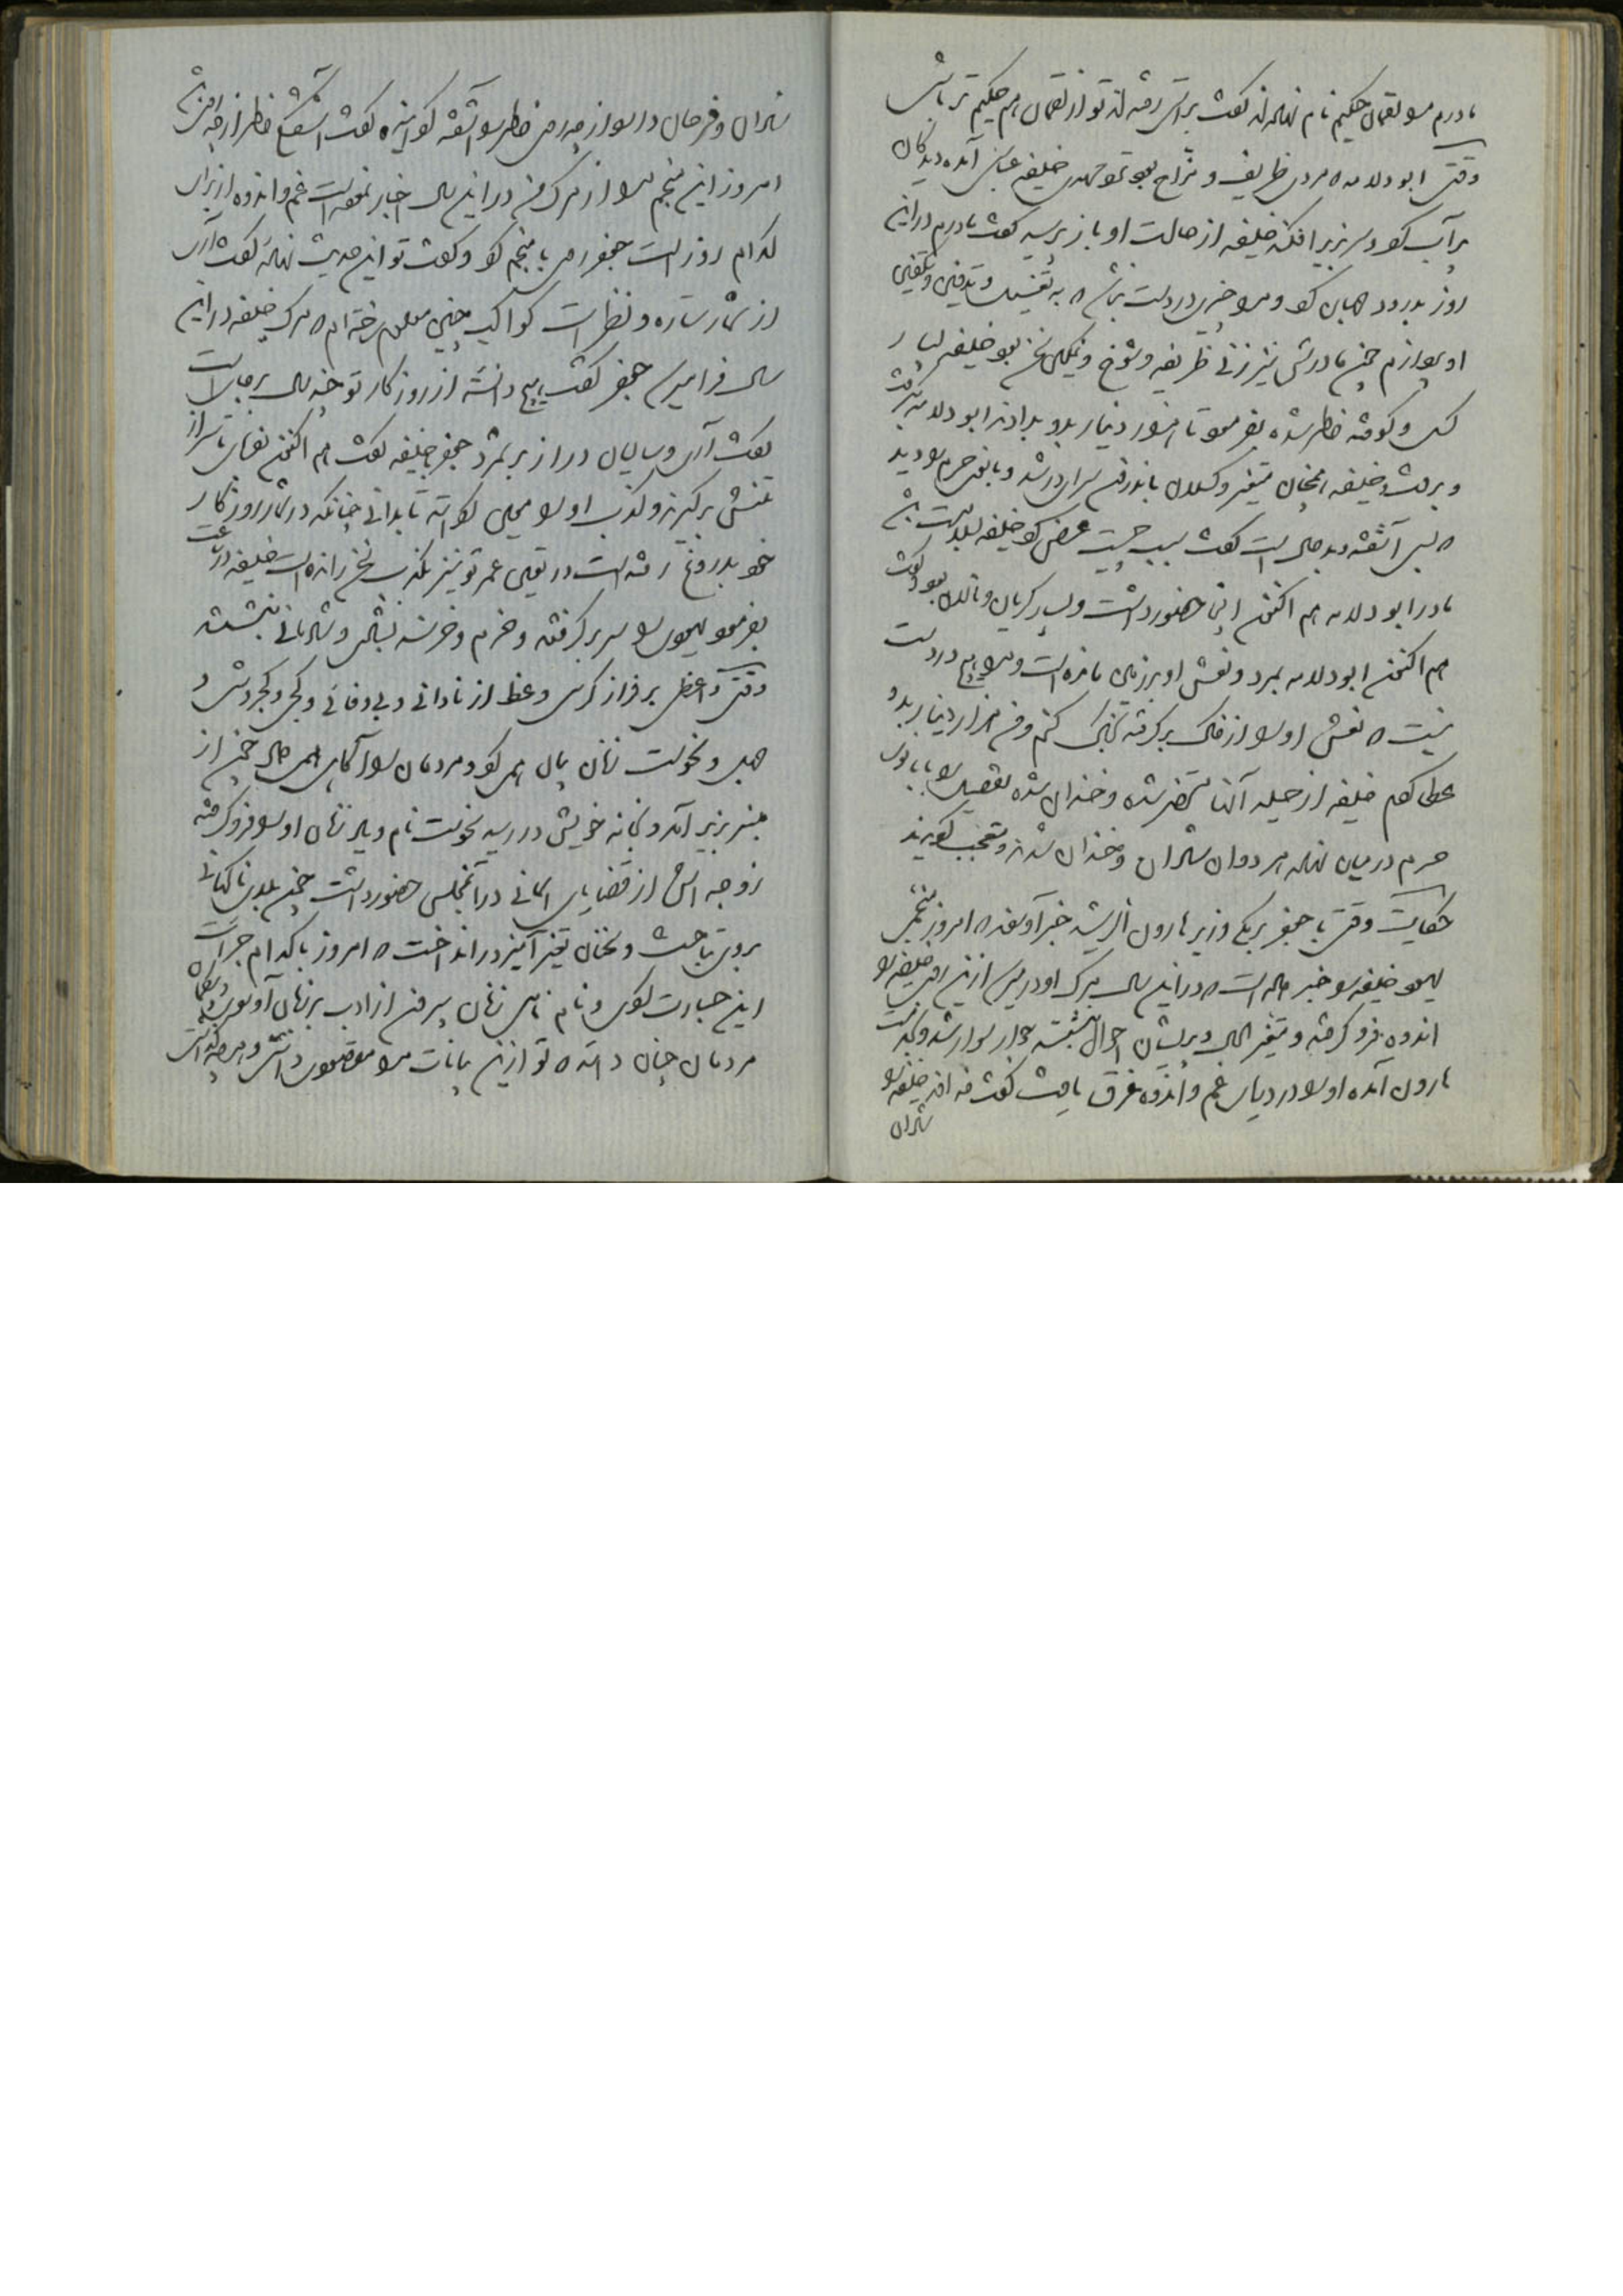 مادرم مرا لقمان حکیم نام نهاده‌اند گفت براستی رفته‌اند تو از لقمان هم حکیم تر باشی
وقتی ابو دلامه که مردی ظریف و مزاح بود نزد مهدی خلیفه عباسی آمده دیدگان
پر آب کرد و سر بزیر افکند خلیفه از حالت او باز پرسید گفت مادرم در این
روز بدرود جهان کرد و مرا چیزی در دست نباشد که به تغسیل و تدفین و تکفین
او پردازم چون مادرش نیز زنی ظریفه و شوخ و نیکو سخن بود خلیفه بسیار
کسل و کوفته خاطر شده بفرمود تا هزار دینار بدو بدادند ابو دلامه بگرفت
و برفت و خلیفه همچنان متغیر و کسلان باندرون سرای در شد و بانوی حرم او را دید
که بس آشفته و بد حال است گفت سبب چیست عرض کرد خلیفه بسلامت باشد
مادر ابو دلامه هم اکنون اینجا حضور داشت و بسیار گریان و نالان بود و گفت
هم اکنون ابو دلامه بمرد و نعش او بر زمین مانده است و مرا هیچ در دست
نیست که نعش او را از خاک بر گرفته بخاک کنم و من هزار دینار بدو
عطا کردم خلیفه از حیله آنها متحضر شده و خندان شده تفصیل را با بانوی
حرم در میان نهاد هر دوان شادان و خندان شدند و تعجب گزیدند
حکایت وقتی با جعفر برمکی وزیر هارون الرشید خبر آوردند که امروز منجمی
یهود خلیفه را خبر داده است که در این سال بمرگ او در پس ازین روی خلیفه را
اندوه فرو گرفته و متغیر الحال و پریشان احوال نشسته جعفر سوار شد و بخدمت
هارون آمده او را در دریای غم و اندوه غرق یافت گفت خلیفه را
شادان
شادان و فرحان دار از چه روی خاطر را آشفته کرد گفت آشفتگی خاطر از چه
امروز این منجم مرا از مرگ من در این سال اخبار نموده است غم و اندوه از برای
کدام روز است جعفر روی با منجم کرد و گفت تو این حدیث نهاده گفت آری
از شمار ستاره و نظرات کواکب چنین معلوم ساخته ام که مرگ خلیفه در این
سال فرا میرسد جعفر گفت هیچ دانسته از روزگار تو چند سال بر جای است
گفت آری و سالیان دراز بر شمرد جعفر با خلیفه گفت هم اکنون بفرمای تا سر از
تنش بر گیرند و کذب او را معین کن تا بدانی چنانکه در شمار روزگار
خود بدروغ رفته است در تعیین عمر تو نیز بکذب سخن رانده است خلیفه در ساعت
بفرمود یهودی را سر بر گرفتند و خرم و خرسند بنشاط و شادمانی بنشست
وقتی واعظی بر فراز کرسی وعظ از نادانی و بی وفائی و کجی و کجروشی و
جهل و نخوت زنان بیان همی کرد و مردمان را آگاهی همی داد چون از
منبر بزیر آمد و بخانه خویش در رسید نخوت نام و یاد زنان او را فرو گرفته
زوجه اش از قضایای آسمانی در آنمجلس حضور داشت چون بلای ناگهانی
بروی بتاخت و سخنان تغیر آمیز در انداخت که امروز با کدام جرأت
این جسارت کردی و نام نامی زنان بیرون از ادب بر زبان آوردی
مردمان چنان دانند که تو ازین بیانات مرا مقصود داشتی و